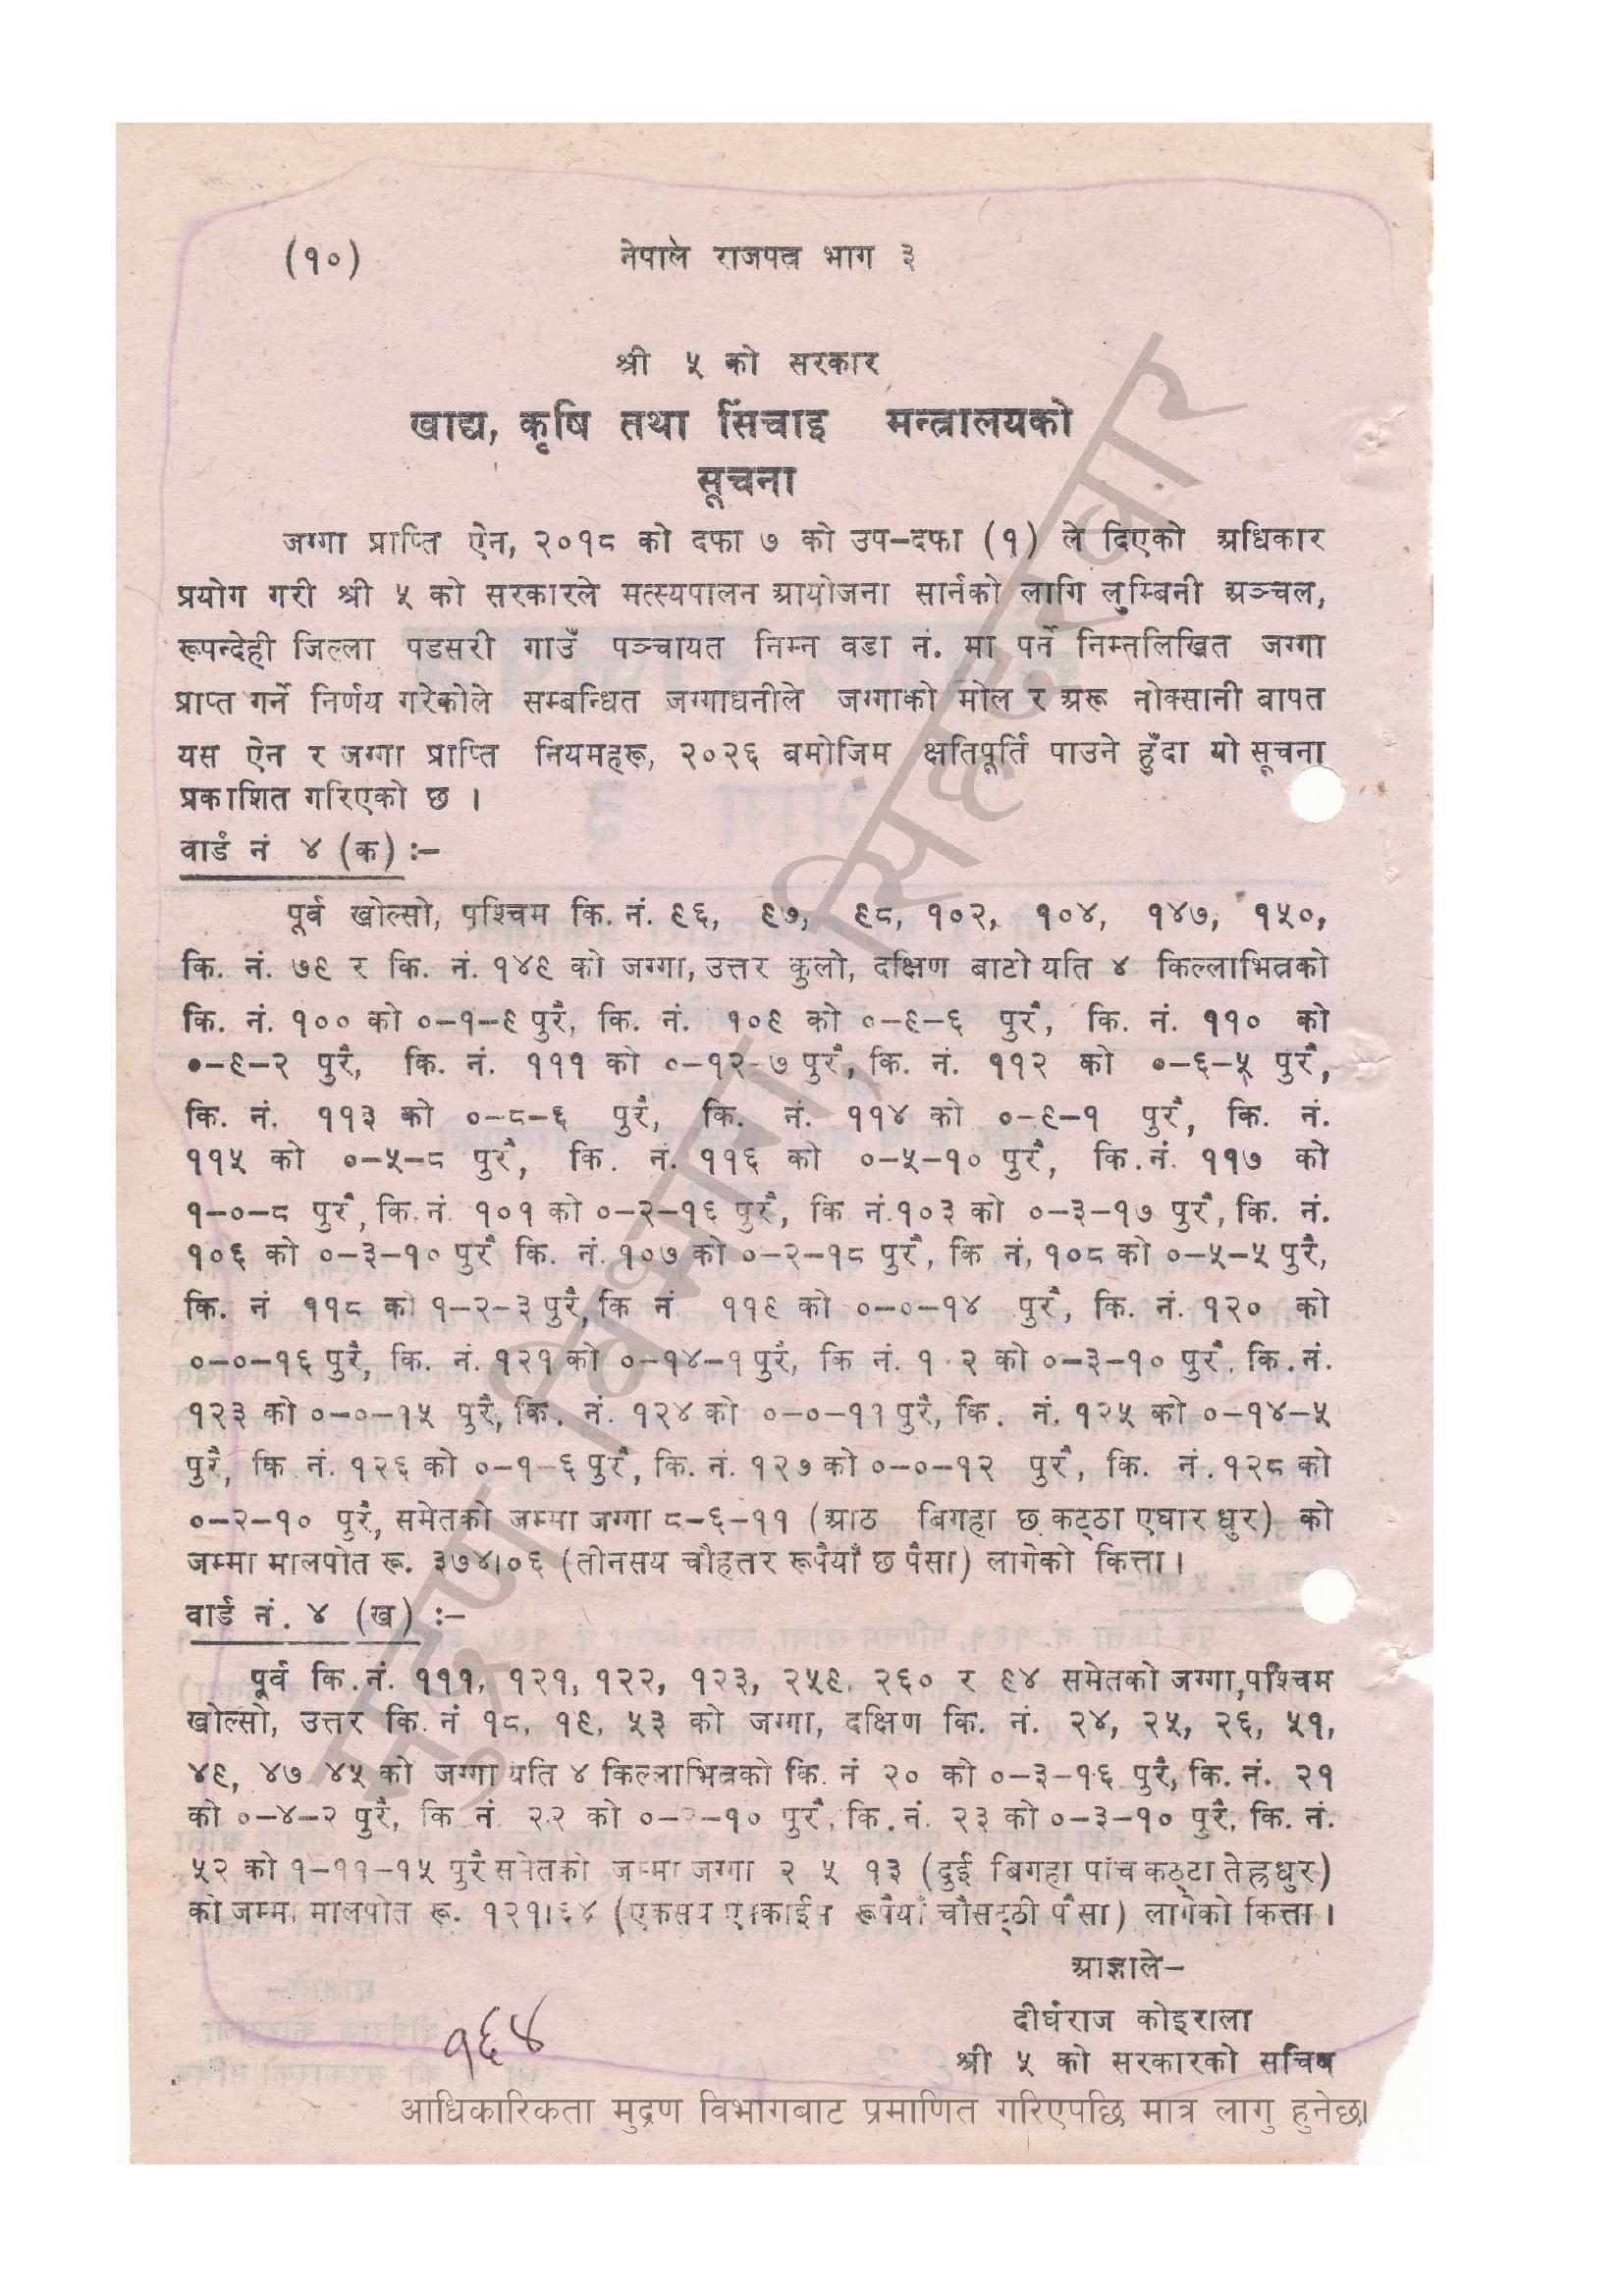 (१०) नेपाल राजपत्र भाग ३
श्री ५ को सरकार
खाद्य, कृषि तथा सिंचाइ मन्त्रालयको
सूचना
जग्गा प्राप्ति ऐन, २०१८ को दफा ७ को उप-दफा (१) ले दिएको अधिकार
प्रयोग गरी श्री ५ को सरकारले मत्स्यपालन आयोजना सार्नको लागि लुम्बिनी अञ्चल,
रूपन्देही जिल्ला पडसरी गाउँ पञ्चायत निम्न वडा नं. मा पर्ने निम्नलिखित जग्गा
प्राप्त गर्ने निर्णय गरेकोले सम्बन्धित जग्गाधनीले जग्गाको मोल र अरू नोक्सानी बापत
यस ऐन र जग्गा प्राप्ति नियमहरू, २०२६ बमोजिम क्षतिपूर्ति पाउने हुँदा यो सूचना
प्रकाशित गरिएको छ ।
वार्ड नं ४ (क) :–
पूर्व खोल्सो, पश्चिम कि. नं. ९६, ९७, ९८, १०२, १०४, १४७, १५०,
कि. नं. ७९ र कि. नं. १४९ को जग्गा, उत्तर कुलो, दक्षिण बाटो यति ४ किल्लाभित्रको
कि. नं. १०० को ०–१–९ पुरै, कि. नं. १०९ को ०–९–६ पुरै, कि. नं. ११० को
०–९–२ पुरै, कि. नं. १११ को ०–१२–७ पुरै, कि. नं. ११२ को ०–६–५ पुरै,
कि. नं. ११३ को ०–८–६ पुरै, कि. नं. ११४ को ०–९–१ पुरै, कि. नं.
११५ को ०–५–८ पुरै, कि. नं. ११६ को ०–५–१० पुरै, कि.नं. ११७ को
१–०–८ पुरै, कि. नं. १०१ को ०–२–१६ पुरै, कि नं.१०३ को ०–३–१७ पुरै, कि. नं.
१०६ को ०–३–१० पुरै कि. नं. १०७ को ०–२–१८ पुरै, कि नं, १०८ को ०–५–५ पुरै,
कि. नं ११८ को १–२–३ पुरै, कि नं ११९ को ०–०–१४ पुरै, कि. नं. १२० को
०–०–१६ पुरै, कि. नं. १२१ को ०–१४–१ पुरै, कि नं. १ २ को ०–३–१० पुरै, कि.नं.
१२३ को ०–०–१५ पुरै, कि. नं. १२४ को ०–०–११ पुरै, कि. नं. १२५ को ०–१४–५
पुरै, कि नं. १२६ को ०–१–६ पुरै, कि. नं. १२७ को ०–०–१२ पुरै, कि. नं. १२८ को
०–२–१० पुरै, समेतको जम्मा जग्गा ८–६–११ (आठ बिगहा छ कट्ठा एघार धुर) को
जम्मा मालपोत रू. ३७४।०६ (तीनसय चौहत्तर रूपैयाँ छ पैसा) लागेको कित्ता ।
वार्ड नं. ४ (ख) :–
पूर्व कि.नं. १११, १२१, १२२, १२३, २५९, २६० र ९४ समेतको जग्गा,पश्चिम
खोल्सो, उत्तर कि. नं १८, १९, ५३ को जग्गा, दक्षिण कि. नं. २४, २५, २६, ५१,
४९, ४७ ४५ को जग्गा यति ४ किल्लाभित्रको कि. नं २० को ०–३–१६ पुरै, कि. नं. २१
को ०–४–२ पुरै, कि नं २२ को ०–२–१० पुरै, कि. नं. २३ को ०–३–१० पुरै, कि. नं.
५२ को १–११–१५ पुरै समेतको जम्मा जग्गा २ ५ १३ (दुई बिगहा पांच कठ्टा तेह्रधुर)
को जम्मा मालपोत रू. १२१।६४ (एकसय रूपैयाँ चौसट्ठी पैसा) लागेको कित्ता ।
आज्ञाले–
दीर्घराज कोइराला
श्री ५ को सरकारको सचिव
१६४
आधिकारिकता मुद्रण विभागबाट प्रमाणित गरिएपछि मात्र लागु हुनेछ।
मुद्रण विभाग, सिंहदरबार